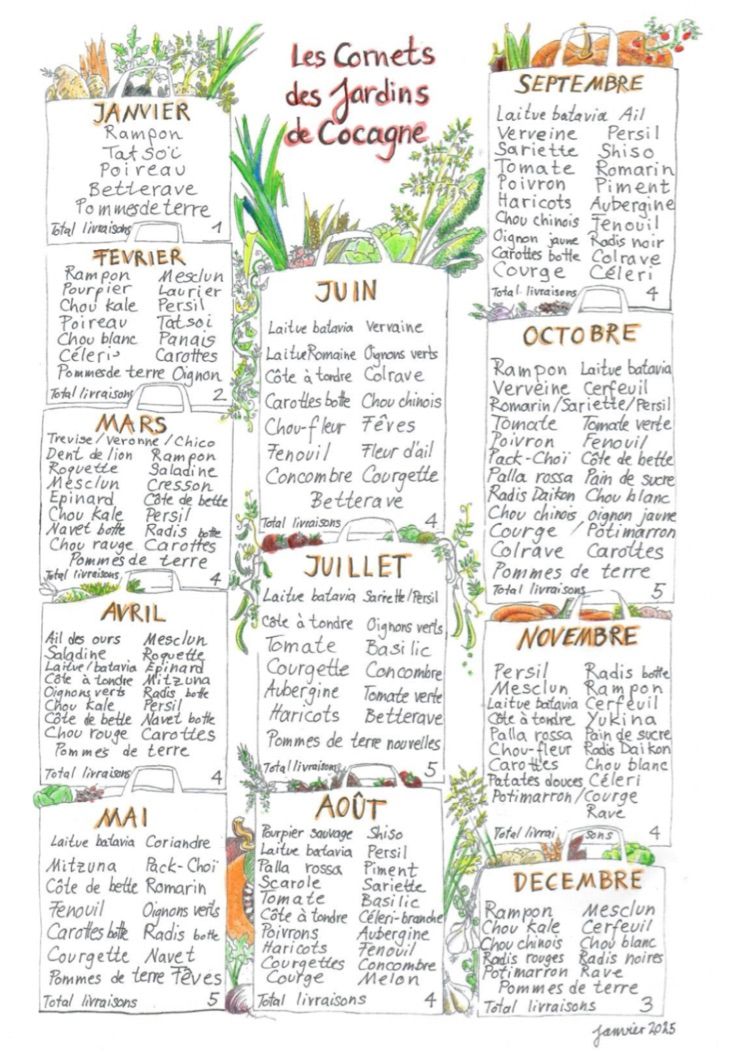 Les Cornets
des Jardins
de Cocagne
JANVIER
Rampon
Tatsoï
Poireau
Betterave
Pommes de terre
Total livraisons 1
FEVRIER
Rampon Mesclun
Pourpier Laurier
Chou kale Persil
Poireau Tatsoi
Chou blanc Panais
Céleri Carottes
Pommes de terre Oignon
Total livraisons 2
MARS
Trevise/Veronne/Chico
Dent de lion Rampon
Roquette Saladine
Mesclun Cresson
Epinard Côte de bette
Chou Kale Persil
Navet botte Radis botte
Chou rouge Carottes
Pommes de terre
Total livraisons 4
AVRIL
Ail des ours Mesclun
Saladine Roquette
Laitue/batavia Epinard
Côte à tondre Mitzuna
Oignons verts Radis botte
Chou Kale Persil
Côte de bette Navet botte
Chou rouge Carottes
Pommes de terre
Total livraisons 4
MAI
Laitue batavia Coriandre
Mitzuna Pack-Choï
Côte de bette Romarin
Fenouil Oignons verts
Carottes botte Radis botte
Courgette Navet
Pommes de terre Fêves
Total livraisons 5
JUIN
Laitue batavia Vervaine
Laitue Romaine Oignons verts
Côte à tondre Colrave
Carottes botte Chou chinois
Chou-fleur Fêves
Fenouil Fleur d'ail
Concombre Courgette
Betterave
Total livraisons 4
JUILLET
Laitue batavia Sariette/Persil
Côte à tondre Oignons verts
Tomate Basilic
Courgette Concombre
Aubergine Tomate verte
Haricots Betterave
Pommes de terre nouvelles
Total livraisons 5
AOÛT
Pourpier sauvage Shiso
Laitue batavia Persil
Palla rossa Piment
Scarole Sariette
Tomate Basilic
Côte à tondre Céleri-branche
Poivrons Aubergine
Haricots Fenouil
Courgettes Concombre
Courge Melon
Total livraisons 4
SEPTEMBRE
Laitue batavia Ail
Verveine Persil
Sariette Shiso
Tomate Romarin
Poivron Piment
Haricots Aubergine
Chou chinois Fenouil
Oignon jaune Radis noir
Carottes botte Colrave
Courge Céleri
Total livraisons 4
OCTOBRE
Rampon Laitue batavia
Vervèine Cerfeuil
Romarin/Sariette/Persil
Tomate Tomate verte
Poivron Fenouil
Pack-Choï Côte de bette
Palla rossa Pain de sucre
Radis Daikon Chou blanc
Chou chinois oignon jaune
Courge / Potimarron
Colrave Carottes
Pommes de terre
Total livraisons 5
NOVEMBRE
Persil Radis botte
Mesclun Rampon
Laitue batavia Cerfeuil
Côte à tondre Yukina
Palla rossa Pain de sucre
Chou-fleur Radis Daikon
Carottes Chou blanc
Patates douces Céleri
Potimarron/Courge
Rave
Total livraisons 4
DECEMBRE
Rampon Mesclun
Chou Kale Cerfeuil
Chou chinois Chou blanc
Radis rouges Radis noires
Potimarron Rave
Pommes de terre
Total livraisons 3
janvier 2025